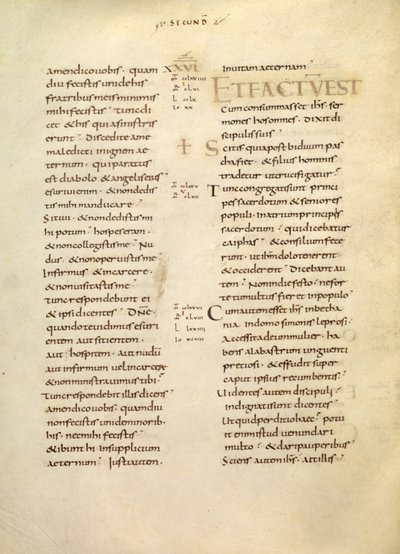 SECUND
amendico uobis · quam
diu fecistis uni dehis
fratribus meis minimis
mihi fecistis · Tunc di
cet & his qui asinistris
erunt · Discedite ame
maledicti inignem ae
ternum · qui paratus
est diabolo & angelis eius
esuriui enim · & non dedis
tis mihi manducare ·
Sitiui · & non dedistis mi
hi potum · hospes eram ·
& non collegistis me · Nu
dus · & non operuistis me
Infirmus & in carcere ·
& non uisitastis me ·
tunc respondebunt ei
& ipsi dicentes · DNE ·
quando te uidimus esuri
entem aut sitientem ·
aut hospitem · aut nudū
aut infirmum uel in carcere
& non ministrauimus tibi ·
Tunc respondebit illis dicens
amendico uobis · quamdiu
non fecistis uni deminorib ·
his · nec mihi fecistis
& ibunt hi insupplicium
aeternum · Iusti autem ·
XXVI
L
L
L
in uitam aeternam
ET FACTŪ EST
Cum consummasset ihs ser
mones hos omnes · dixit di
scipulis suis
Scitis quia post biduum pas
cha fiet · & filius hominis
tradetur ut crucifigatur ·
Tunc congregati sunt princi
pes sacerdotum & seniores
populi · in atrium principis
sacerdotum · qui dicebatur
caiphas · & consilium fece
runt · ut ihm dolo tenerent
& occiderent · Dicebant au
tem · Non in die festo · ne for
te tumultus fier& in populo
Cum autem esset ihs in betha
nia · in domo simonis leprosi ·
accessit ad eum mulier · ha
bens alabastrum unguenti
pretiosi · & effudit super
caput ipsius recumbentis ·
Uidentes autem discipuli
indignati sunt dicentes ·
Ut quid perditio haec · potu
it enim istud uenundari
multo · & dari pauperibus
Sciens autem ihs · ait illis ·